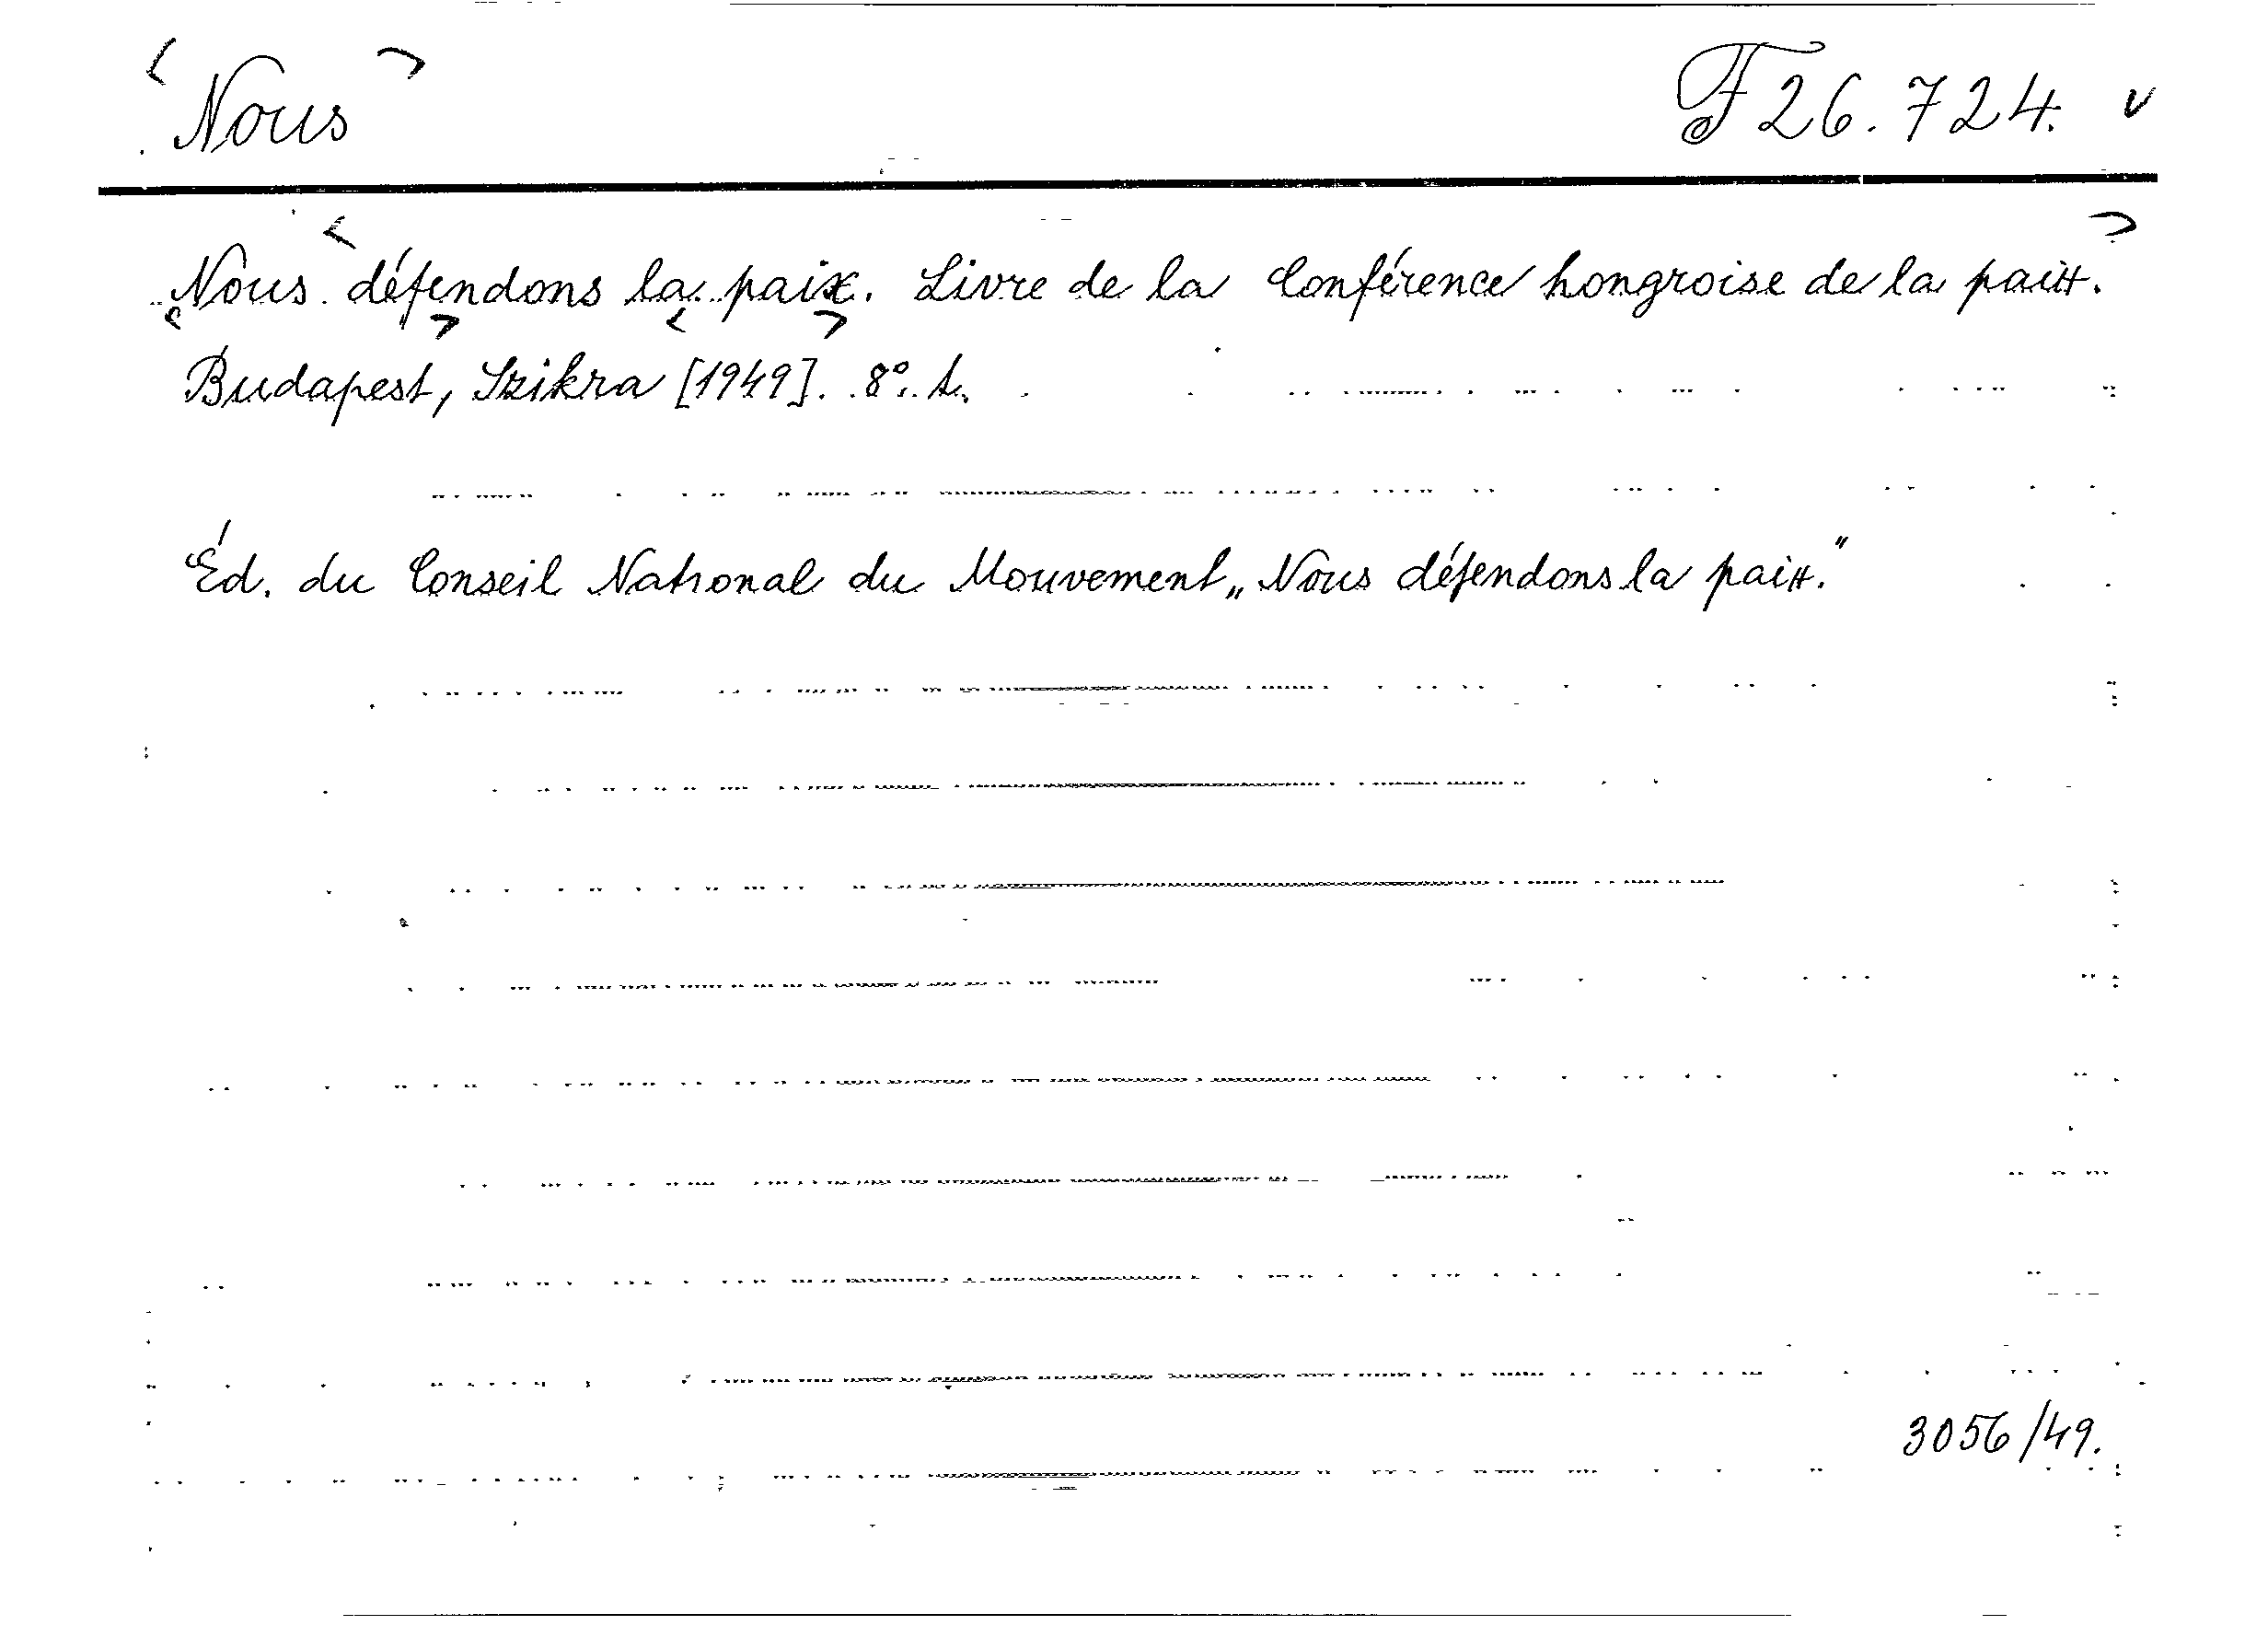 <Nous> F 26.724. v
Nous <défendons la paix. Livre de la Conférence hongroise de la paix.>
<Budapest>, <Szikra> [1949]. 8°. t.
Éd. du Conseil National du Mouvement „Nous défendons la paix.”
3056/49.